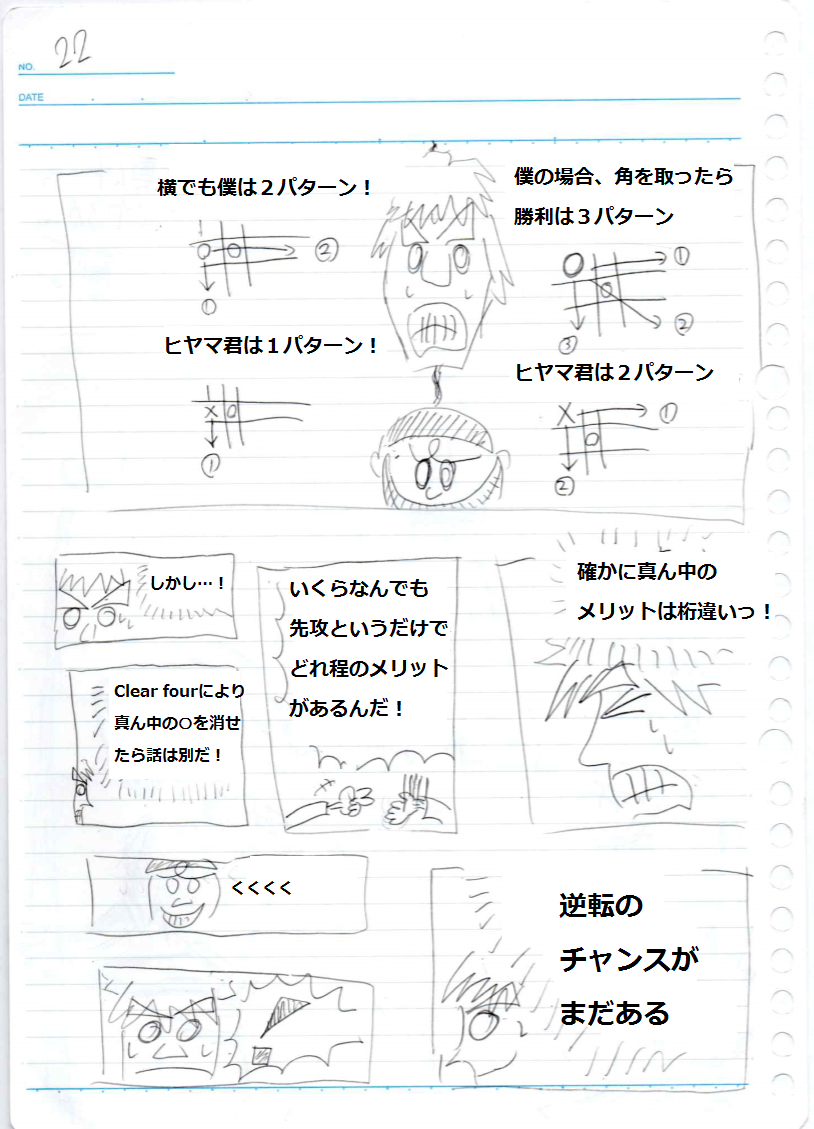 NO. 22
DATE
僕の場合、角を取ったら
勝利は３パターン
①
②
③
ヒヤマ君は２パターン
×
①
②
横でも僕は２パターン！
②
①
ヒヤマ君は１パターン！
×
①
確かに真ん中の
メリットは桁違いっ！
いくらなんでも
先攻というだけで
どれ程のメリット
があるんだ！
しかし…！
Clear fourにより
真ん中の○を消せ
たら話は別だ！
逆転の
チャンスが
まだある
くくくく